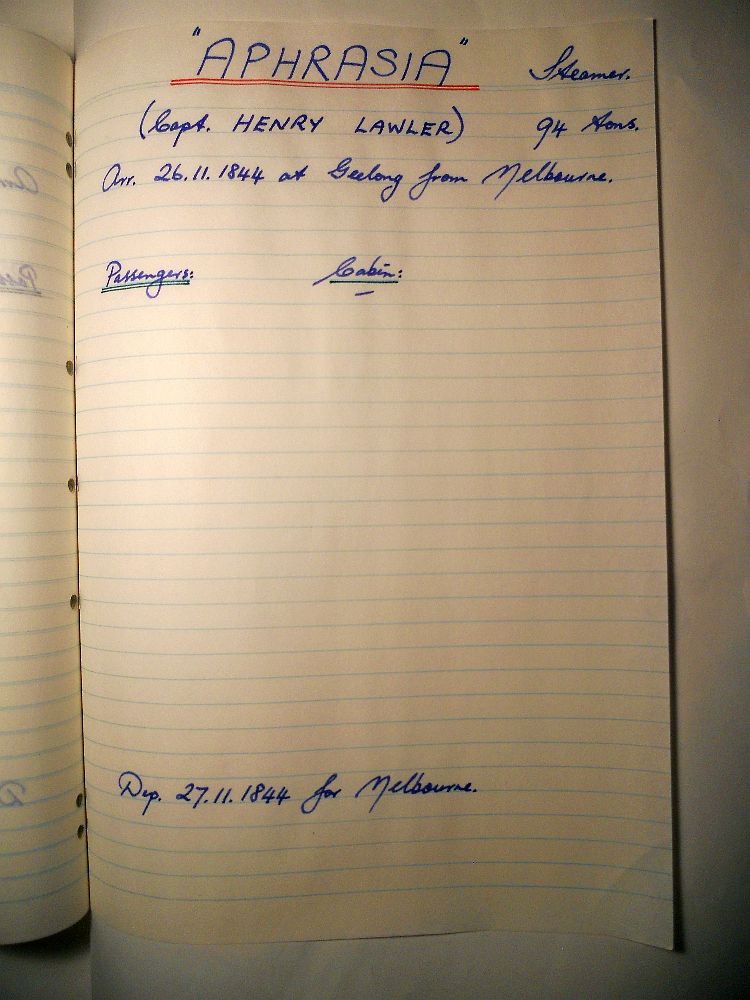 "APHRASIA" Steamer.
(Capt. HENRY LAWLER) 94 tons.
Arr. 26.11.1844 at Geelong from Melbourne.
Passengers: Cabin:
—
Dep. 27.11.1844 for Melbourne.